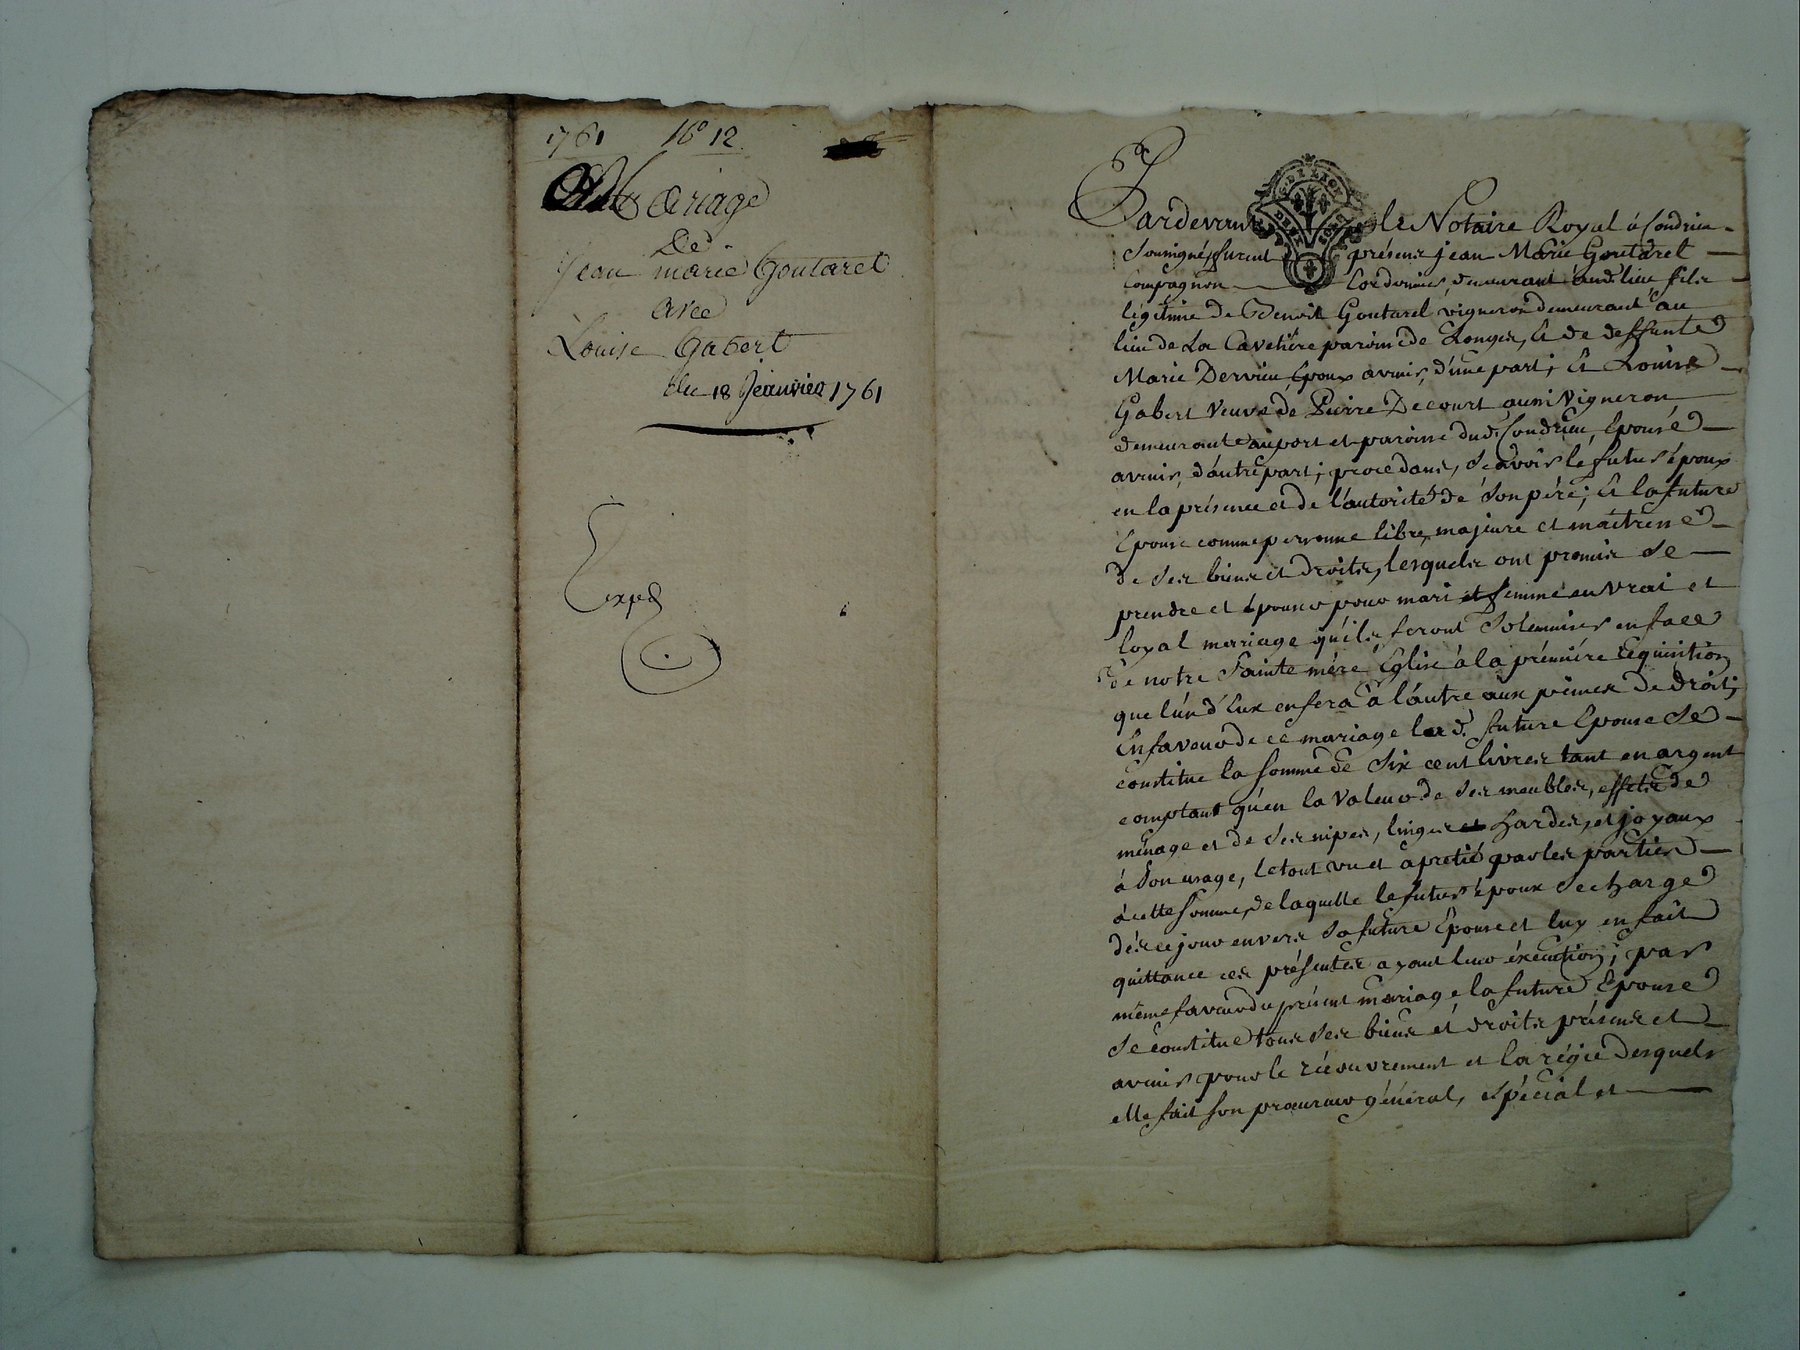 1761 16° 12
Mariage
De
Jean marie Goutarel
avec
Louise Gabert
Du 18 Jeanvier 1761
expd
Pardevant le Notaire Royal à Condrieu
Soussigné, furent présens jean Marie Goutarel
Compagnon Cordonnier, demeurant aud. lieu, fils
légitime de Benoit Goutarel vigneron demeurant au
lieu de La Cavetiere paroisse de Longes, Et de deffunte
Marie Dervieu, Epoux avenir, d'une part; Et Louise
Gabert Veuve de Pierre Decourt aussi Vigneron
demeurante au port et paroisse dud. Condrieu, Epouse
avenir, d'autre part; procedans, Sçavoir le futur époux
en la présence et de l'autorité de Son pére; Et la future
Epouse comme personne libre, majeure et maitresse
de Ses biens et droits, lesquels ont promis Se
prendre et épouser pour mari et femme en vrai et
loyal mariage qu'ils feront Solemniser en face
de notre Sainte mére Eglise à la prémiére requisition
que l'un d'Eux en fera à l'autre aux peines de droit;
En faveur de ce mariage lad. future Epouse Se
constitue la somme de Six cent livres tant en argent
comptant qu'en la valeur de Ses meubles, effets de
ménage et de Ses nipes, linges et hardes, et joyaux
à Son usage, le tout vu et apretié par les parties
à cette somme, de laquelle le futur époux Se charge
dès ce jour envers Sa future Epouse et luy en fait
quittance ces présentes ayant leur éxécution; par
même faveur du présent mariage la future Epouse
Se constitue tous Ses biens et droits présens et
avenir pour le recouvrement et la régie desquels
elle fait son procureur général, Spécial et